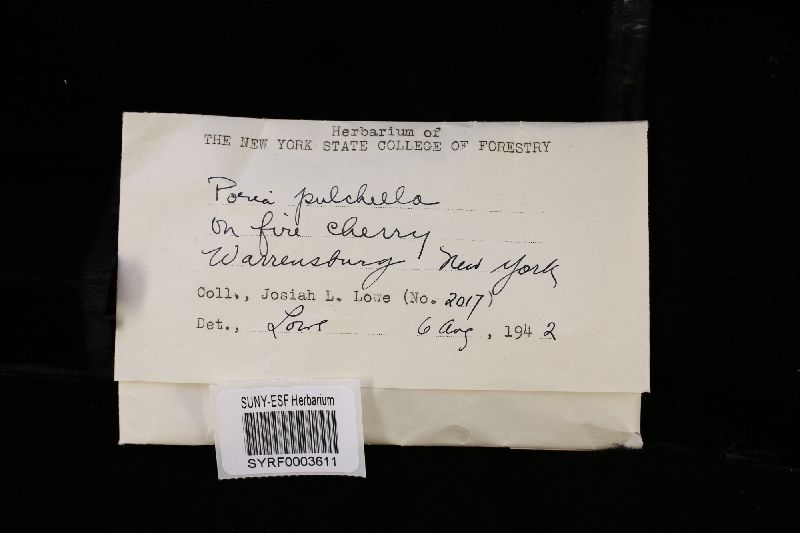 Herbarium of
THE NEW YORK STATE COLLEGE OF FORESTRY
Poria pulchella
On fire cherry
Warrensburg New York
Coll., Josiah L. Lowe (No. 2017)
Det., Lowe 6 Aug, 1942
SUNY-ESF Herbarium
SYRF0003611